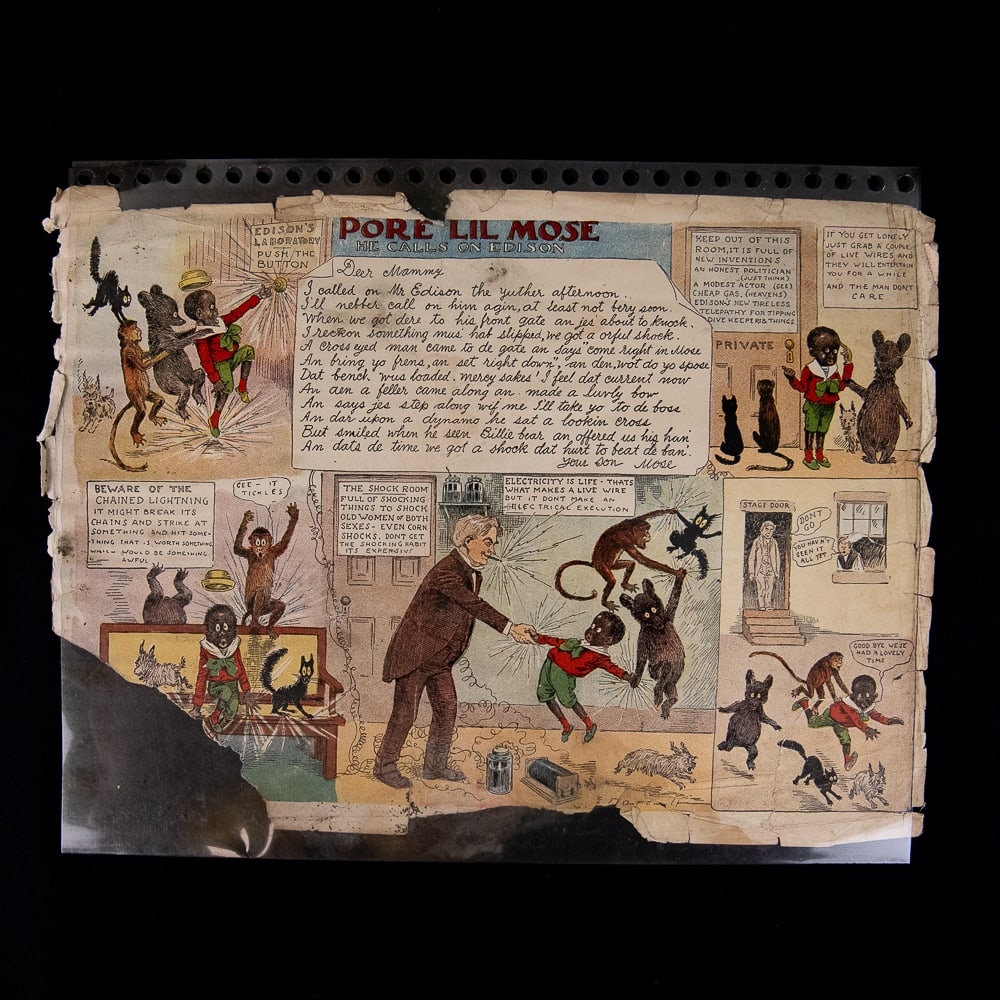 EDISON'S
LABORATORY
PUSH THE
BUTTON
PORE LIL MOSE
HE CALLS ON EDISON
Deer Mammy
I called on Mr Edison the yuther afternoon.
I'll nebber call on him agin, at least not bery soon.
When we got dere to his front gate an jes' about to knock.
I reckon something mus hab slipped, we got a orful shock.
A cross eyed man came to de gate an says come right in Mose
An bring yo frens, an set right down", an den, wot do yo spose
Dat bench 'wus loaded. Mercy sakes' I feel dat current now
An den a feller came along an made a luvly bow
An says jes step along wif me I'll take yo to de boss
An dar upon a dynamo he sat a lookin cross
But smiled when he seen Billie bear an offered us his han'
An dats de time we got a shock dat hurt to beat de ban'.
Your Son Mose
KEEP OUT OF THIS
ROOM, IT IS FULL OF
NEW INVENTIONS
AN HONEST POLITICIAN
(JUST THINK)
A MODEST ACTOR (GEE)
CHEAP GAS, (HEAVENS)
EDISON'S NEW TIRELESS
TELEPATHY FOR TIPPING
DIVE KEEPERS & THINGS
IF YOU GET LONELY
JUST GRAB A COUPLE
OF LIVE WIRES AND
THEY WILL ENTERTAIN
YOU FOR A WHILE
AND THE MAN DON'T
CARE
PRIVATE
BEWARE OF THE
CHAINED LIGHTNING
IT MIGHT BREAK ITS
CHAINS AND STRIKE AT
SOMETHING AND HIT SOME-
THING THAT IS WORTH SOMETHING
WHICH WOULD BE SOMETHING
AWFUL
GEE - IT
TICKLES
THE SHOCK ROOM
FULL OF SHOCKING
THINGS TO SHOCK
OLD WOMEN OF BOTH
SEXES - EVEN CORN
SHOCKS. DON'T GET
THE SHOCKING HABIT
ITS EXPENSIVE
ELECTRICITY IS LIFE - THATS
WHAT MAKES A LIVE WIRE
BUT IT DON'T MAKE AN
ELECTRICAL EXECUTION
STAGE DOOR
DON'T
GO
YOU HAVN'T
SEEN IT
ALL YET
GOOD BYE WE'SE
HAD A LOVELY
TIME